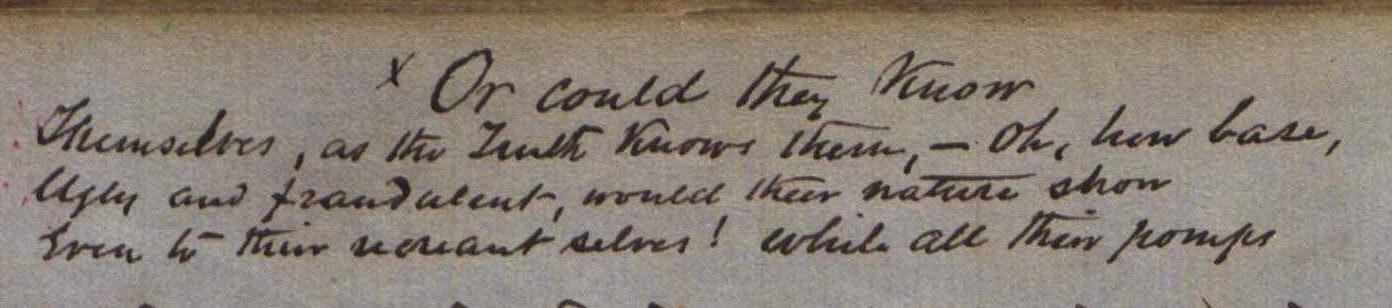 x Or could they Know
Themselves, as the Truth Knows them, – Oh, how base,
Ugly and fraudulent, would their nature show
Even to their recreant selves! while all their pomps